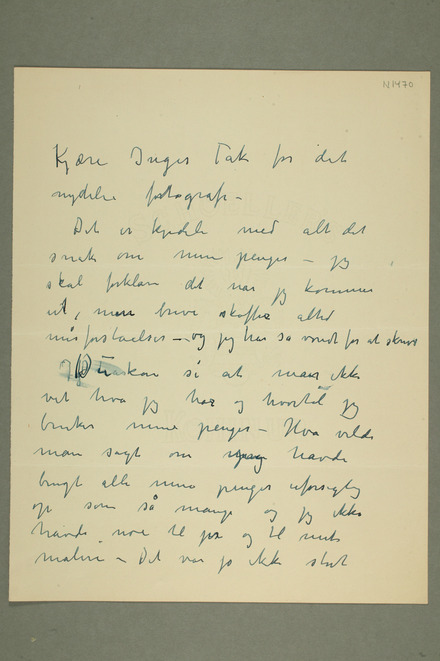 N1470
Kjære Inger Tak for det
nydelie fotografi –
Det er kjedelig med alt det
snak om mine penger – jeg
skal forklare dt når jeg kommer
ut, men breve skaffer altid
misforståelser – og jeg har så vondt for at skrive
Du kan si at man ikke
vet hva jeg har og hvortil jeg
bruker mine penger – Hva vilde
man sagt om jeg havde
brugt alle mine penger uforsigtig
op som så mange og jeg ikke
havde noe til og til mit
maleri – Det var jo ikke stort